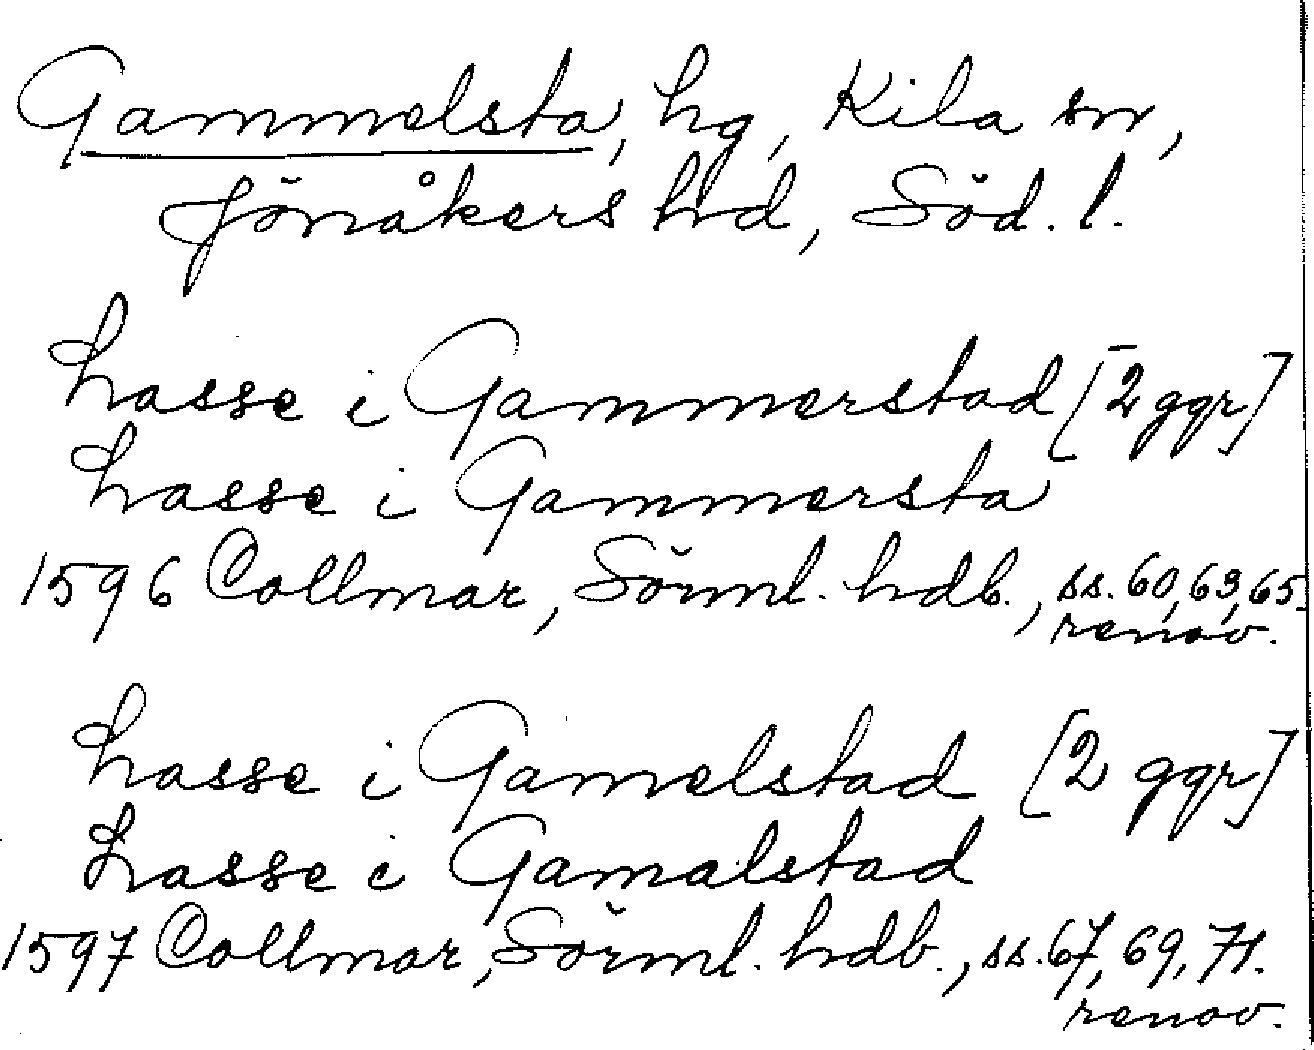 Gammelsta, hg, Kila sn,
Jönåkers hd, Söd. l.
Lasse i Gammerstad [2 ggr]
Lasse i Gammersta
1596 Collmar, Sörml. hdb., ss. 60, 63, 65.
renov.
Lasse i Gamelstad [2 ggr]
Lasse i Gamalstad
1597 Collmar, Sörml. hdb., ss. 67, 69, 71.
renov.